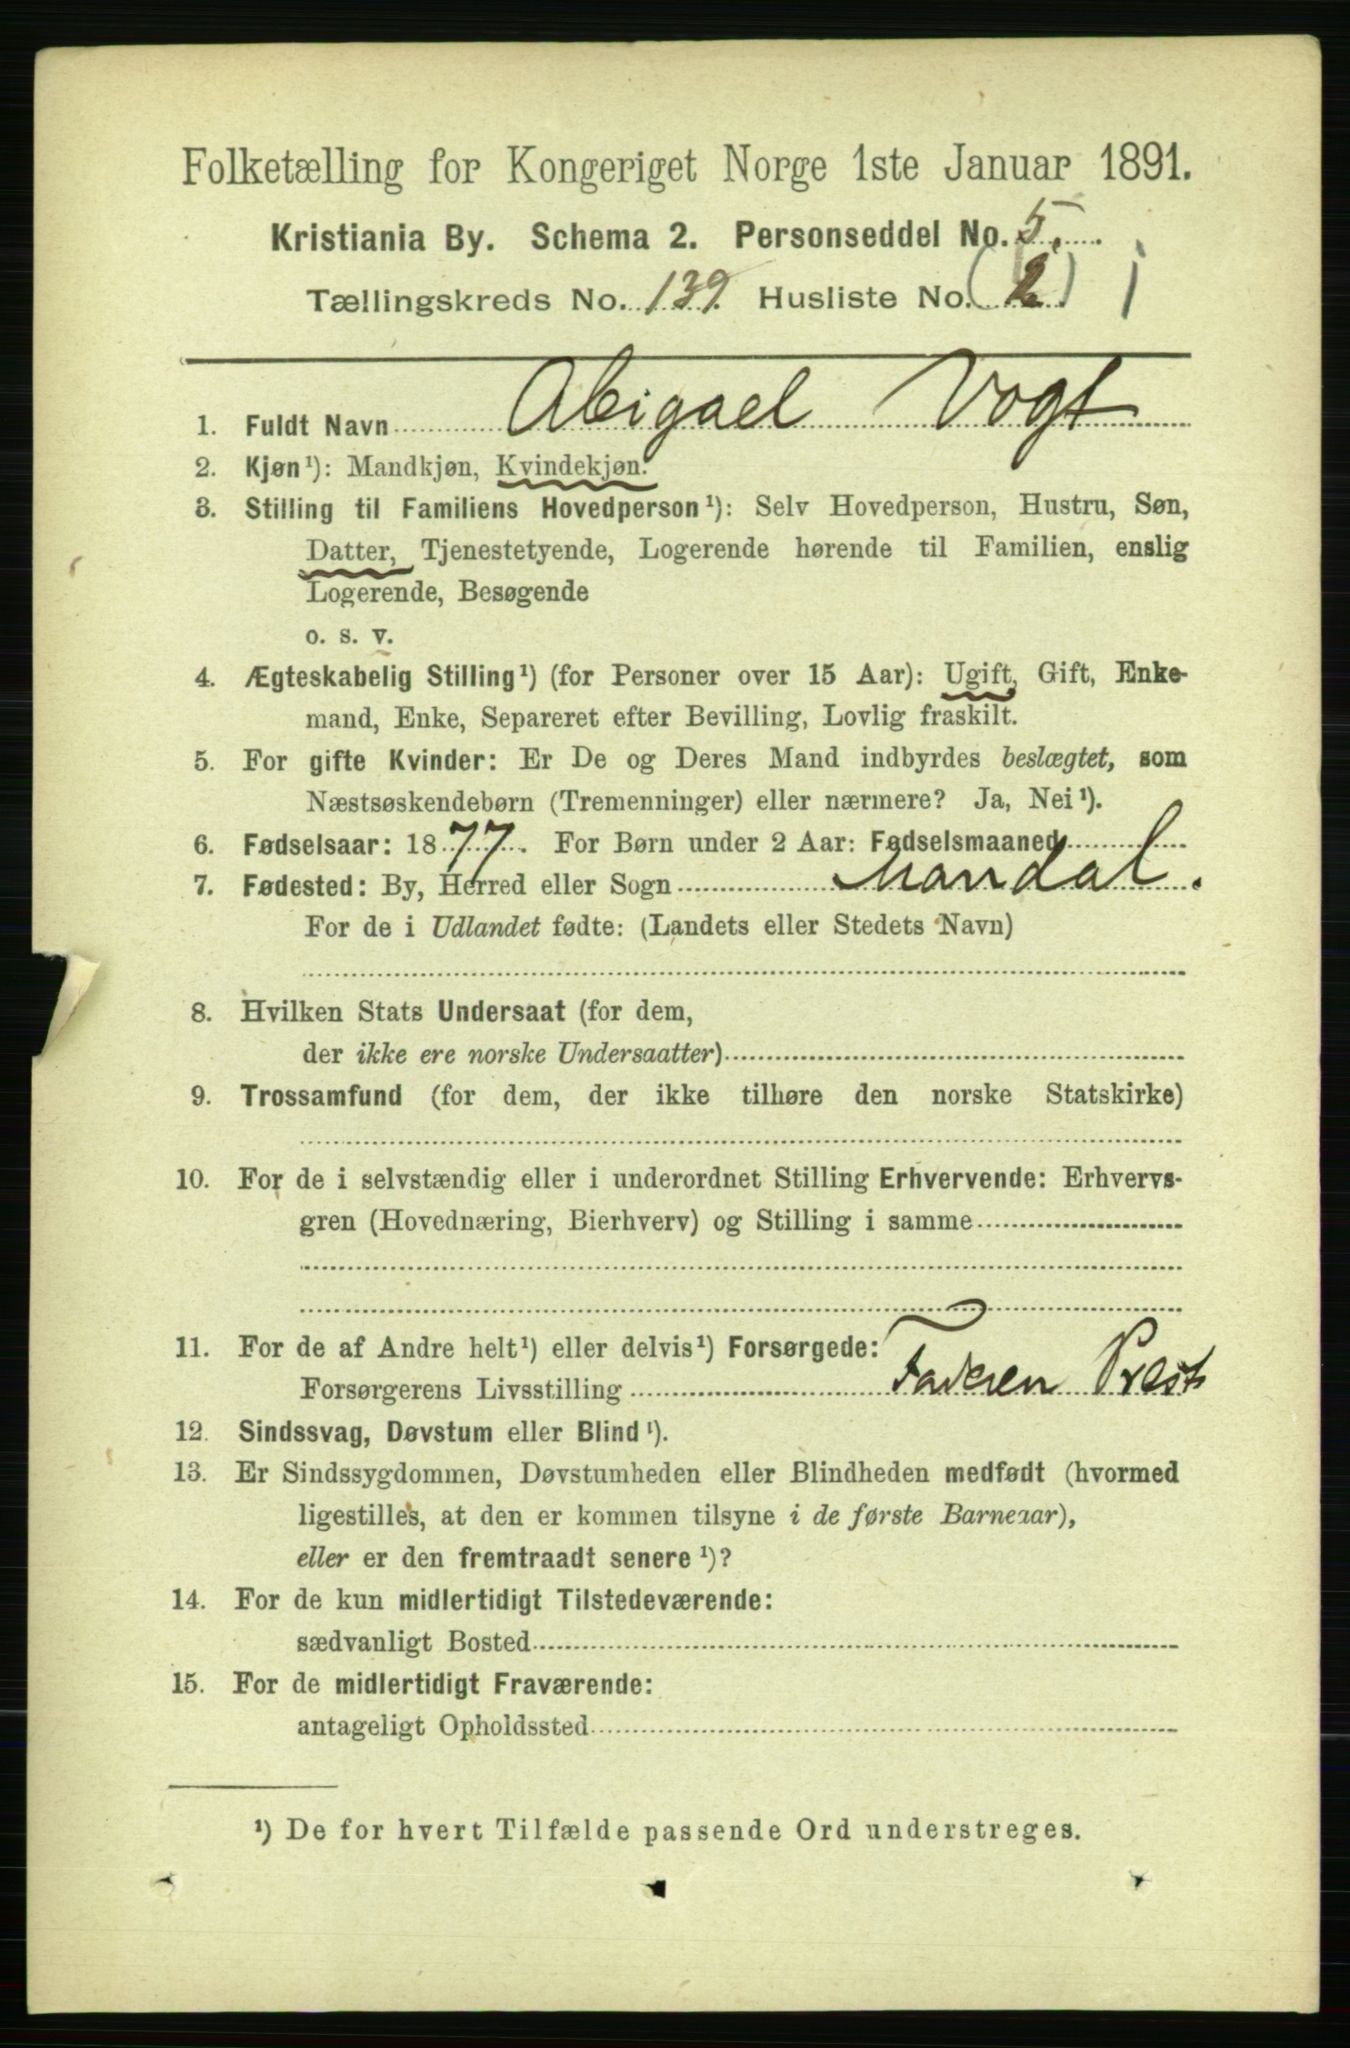 Folketælling for Kongeriget Norge 1ste Januar 1891.
Kristiania By. Schema 2. Personseddel No. 5.
Tællingskreds No. 139. Husliste No. (2) 1
1. Fuldt Navn Abigael Vogt
2. Kjøn¹): Mandkjøn, Kvindekjøn.
3. Stilling til Familiens Hovedperson¹): Selv Hovedperson, Hustru, Søn,
Datter, Tjenestetyende, Logerende hørende til Familien, enslig
Logerende, Besøgende
o. s. v.
4. Ægteskabelig Stilling¹) (for Personer over 15 Aar): Ugift, Gift, Enke-
mand, Enke, Separeret efter Bevilling, Lovlig fraskilt.
5. For gifte Kvinder: Er De og Deres Mand indbyrdes beslægtet, som
Næstsøskendebørn (Tremenninger) eller nærmere? Ja, Nei¹).
6. Fødselsaar: 1877. For Børn under 2 Aar: Fødselsmaaned
7. Fødested: By, Herred eller Sogn Mandal.
For de i Udlandet fødte: (Landets eller Stedets Navn)
8. Hvilken Stats Undersaat (for dem,
der ikke ere norske Undersaatter)
9. Trossamfund (for dem, der ikke tilhøre den norske Statskirke)
10. For de i selvstændig eller i underordnet Stilling Erhvervende: Erhvervs-
gren (Hovednæring, Bierhverv) og Stilling i samme
11. For de af Andre helt¹) eller delvis¹) Forsørgede:
Forsørgerens Livsstilling Faderen Prest
12. Sindssvag, Døvstum eller Blind¹).
13. Er Sindssygdommen, Døvstumheden eller Blindheden medfødt (hvormed
ligestilles, at den er kommen tilsyne i de første Barneaar),
eller er den fremtraadt senere¹)?
14. For de kun midlertidigt Tilstedeværende:
sædvanligt Bosted
15. For de midlertidigt Fraværende:
antageligt Opholdssted
¹) De for hvert Tilfælde passende Ord understreges.